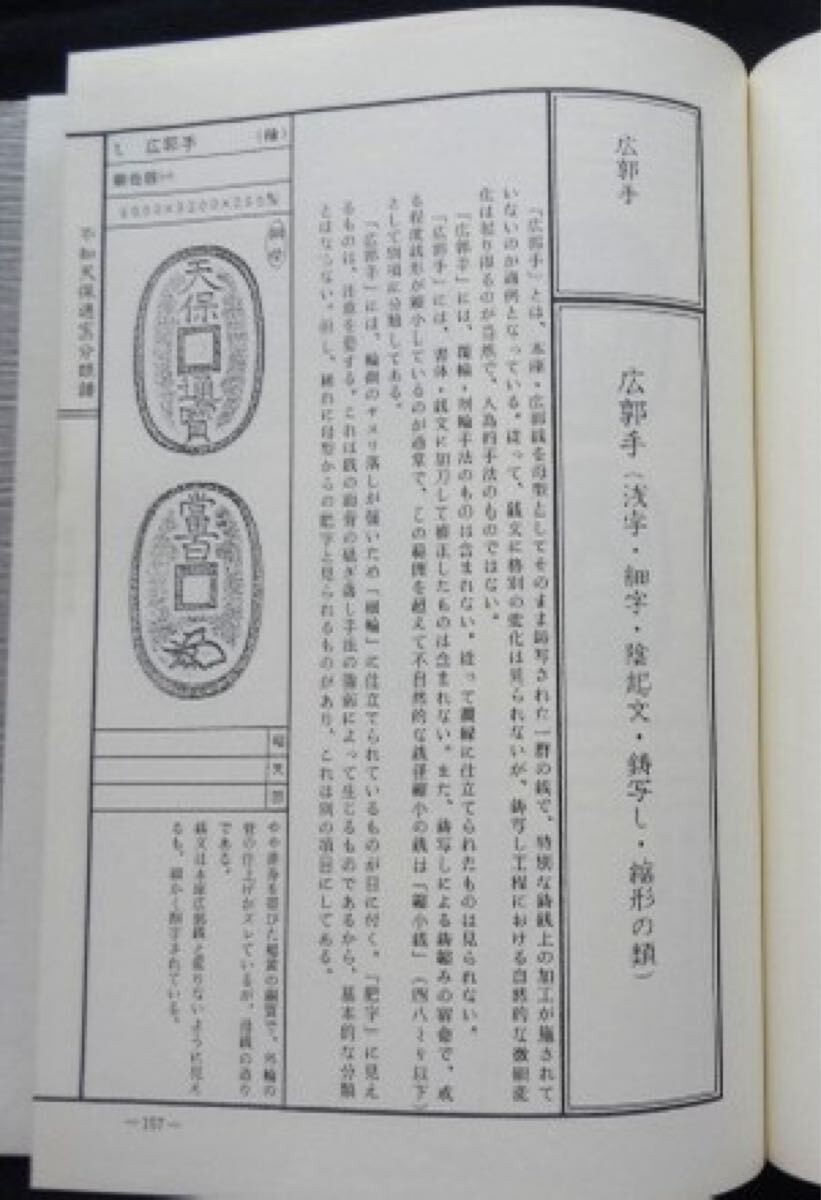 広郭手
広郭手（浅字・細字・陰起文・鋳写し・縮形の類）
「広郭手」とは、本座・広郭銭を母型としてそのまま鋳写された一群の銭で、特別な鋳銭上の加工が施されて
いないのが通例となっている。従って、銭文に格別の変化は見られないが、鋳写し工程における自然的な微細変
化は起り得るのが当然で、人為的手法のものではない。
「広郭手」には、覆輪・刔輪手法のものは含まれない。従って濶縁に仕立てられたものは見られない。
「広郭手」には、書体・銭文に加刀して修正したものは含まれない。また、鋳写しによる鋳縮みの宿命で、或
る程度銭形が縮小しているのが通常で、この範囲を超えて不自然的な銭径縮小の銭は「縮小銭」（四八ミリ以下）
として別項に分類してある。
「広郭手」には、輪側のヤスリ落しが強いため「細輪」に仕立てられているものが目に付く。「肥字」に見え
るものは、注意を要する。これは銭の面背の砥ぎ落し手法の強弱によって生じるものであるから、基本的な分類
とはならない。但し、稀れに母型からの肥字と見られるものがあり、これは別の項目にしてある。
1 広郭手
天保通寳
當百
やや赤身を帯びた褐黄の銅質で、外輪の
背の仕上げがズレているが、母銭の造り
である。
銭文は本座広郭銭と変りないように見え
るも、細かく削字されている。
不知天保通宝分類譜
―157―